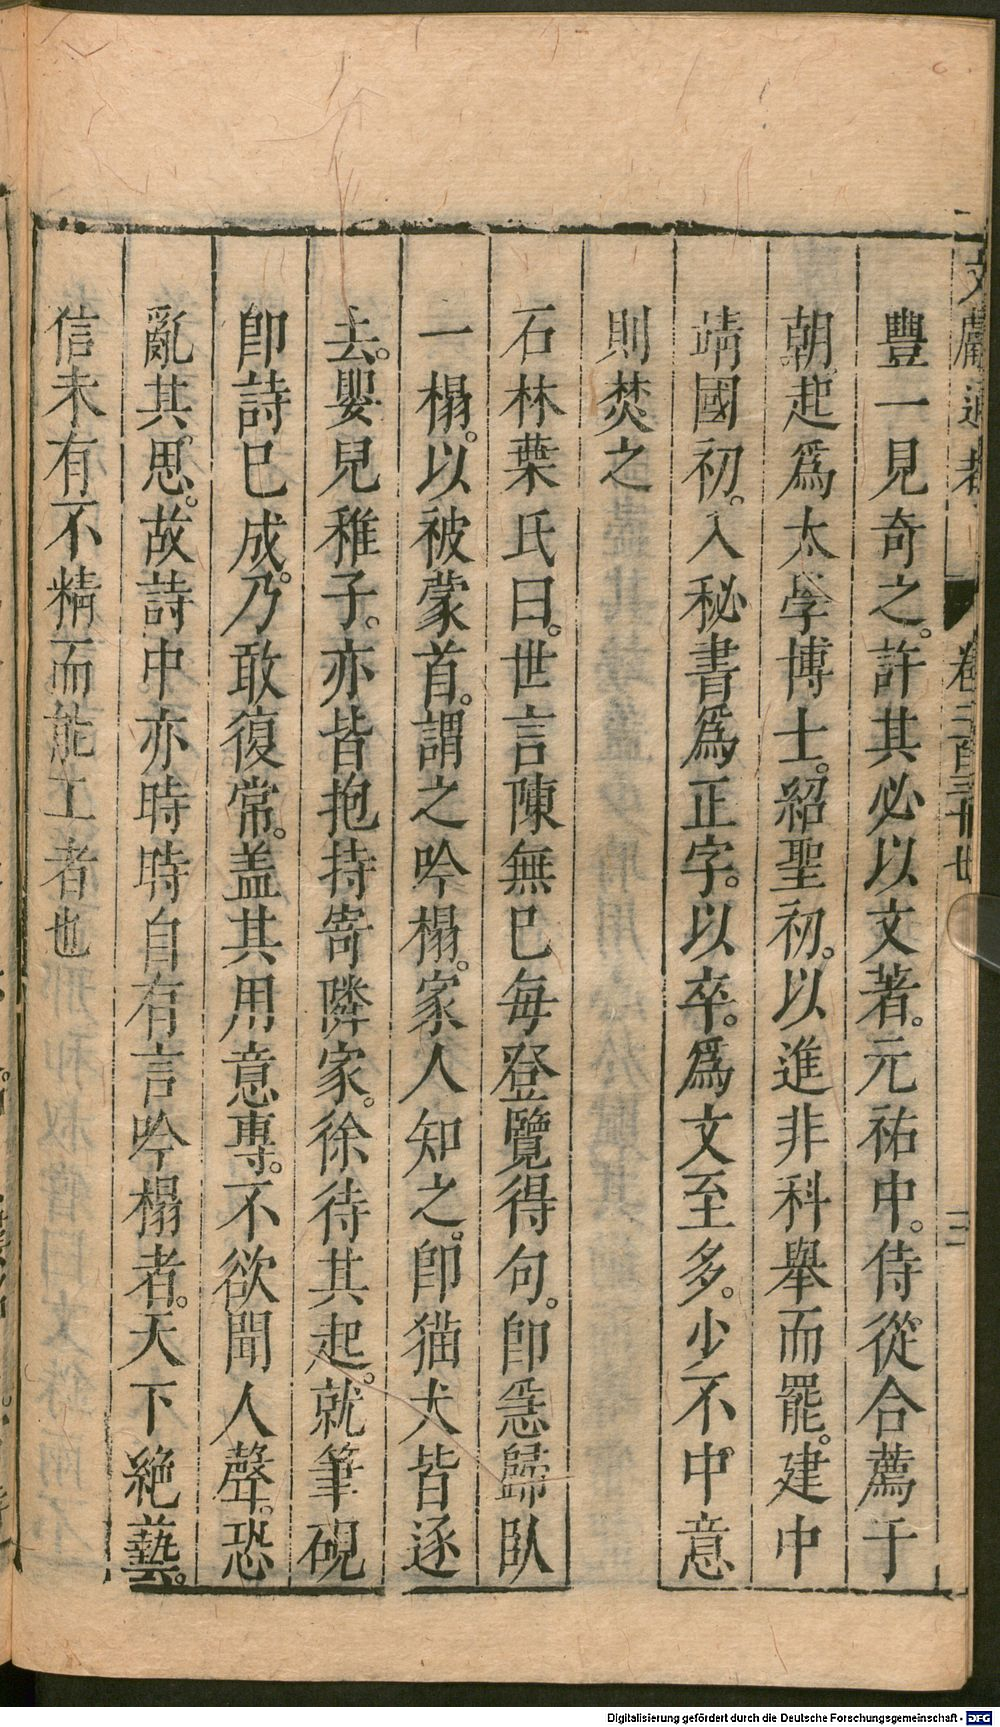 文獻通考 卷二百三十七 三
豐一見奇之。許其必以文著。元祐中。侍從合薦于
朝。起爲太學博士。紹聖初。以進非科舉而罷。建中
靖國初。入秘書爲正字。以卒。爲文至多。少不中意
則焚之
石林葉氏曰。世言陳無巳每登覽得句。卽急歸臥
一榻。以被蒙首。謂之吟榻。家人知之。卽猫犬皆逐
去。嬰兒稚子。亦皆抱持寄隣家。徐待其起。就筆硯
卽詩巳成。乃敢復常。盖其用意專。不欲聞人聲。恐
亂其思。故詩中亦時時自有言吟榻者。天下絶藝。
信未有不精而能工者也
Digitalisierung gefördert durch die Deutsche Forschungsgemeinschaft - DFG